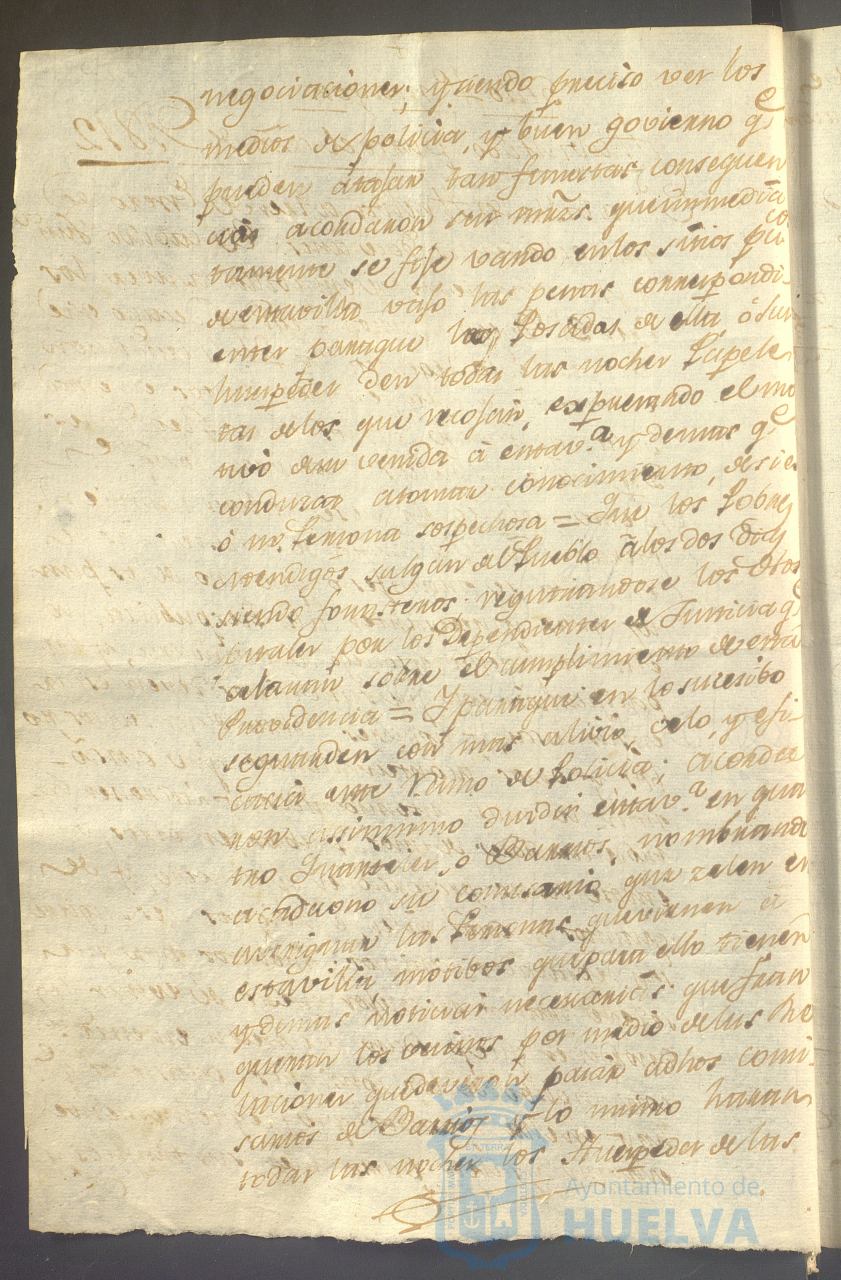 negociaciones, y siendo preciso ver los
medios de policia, y buen govierno qe
puedan atajar tan funestas consequen
cias acordaron sus mrzs. que inmedia
tamente se fije vando en los sitios pcos
de esta villa vajo las penas correspondi-
entes para que las Posadas de ella, ó sus
huespedes den todas las noches Papele
tas de los que recojan, expresando el mo
tivo de su venida á esta va. y demas qe
conduzca, a tomar conocimiento, de si es
ó no Persona sospechosa = Que los Pobres
mendigos salgan del Pueblo á los dos dias
siendo forasteros registrandose los
por los Dependientes de Justicia qe
celaran sobre el cumplimiento de esta
Providencia = Y para que en lo sucesibo
se guarden con mas alivio, celo, y efi
cacia este Ramo de Policia; acorda
ron assimismo dividir esta va. en qua
tro Quarteles, ó Barrios, nombrando
a cada uno su comisario que zelen en
averiguar las Personas que vienen a
esta villa motibos que para ello tienen
y demas noticias necesarias que fran
quearan los vecinos por medio de las Re
laciones que deveran pasar a dhos comi
sarios de Barrios y lo mismo haran
todas las noches los Huespedes de las
Ayuntamiento de
HUELVA